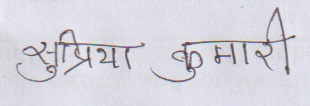 सुप्रिया कुमारी